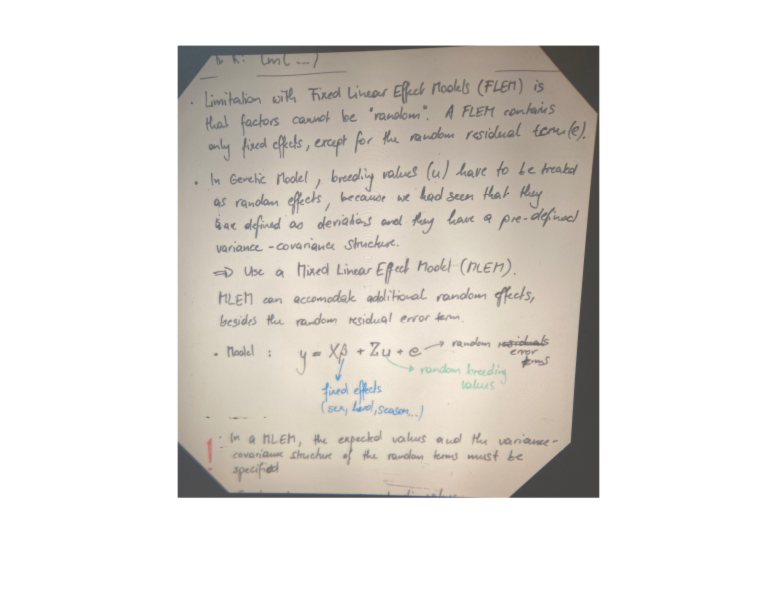 lm(...)
· Limitation with Fixed Linear Effect Models (FLEM) is
that factors cannot be "random". A FLEM contains
only fixed effects, except for the random residual term (e).
· In Genetic Model, breeding values (u) have to be treated
as random effects, because we had seen that they
are defined as deviations and they have a pre-defined
variance-covariance structure.
⇒ Use a Mixed Linear Effect Model (MLEM).
MLEM can accomodate additional random effects,
besides the random residual error term.
· Model : y = Xβ + Zu + e → random residuals
error
terms
→ random breeding
values
fixed effects
(sex, herd, season...)
! : In a MLEM, the expected values and the variance-
covariance structure of the random terms must be
specified